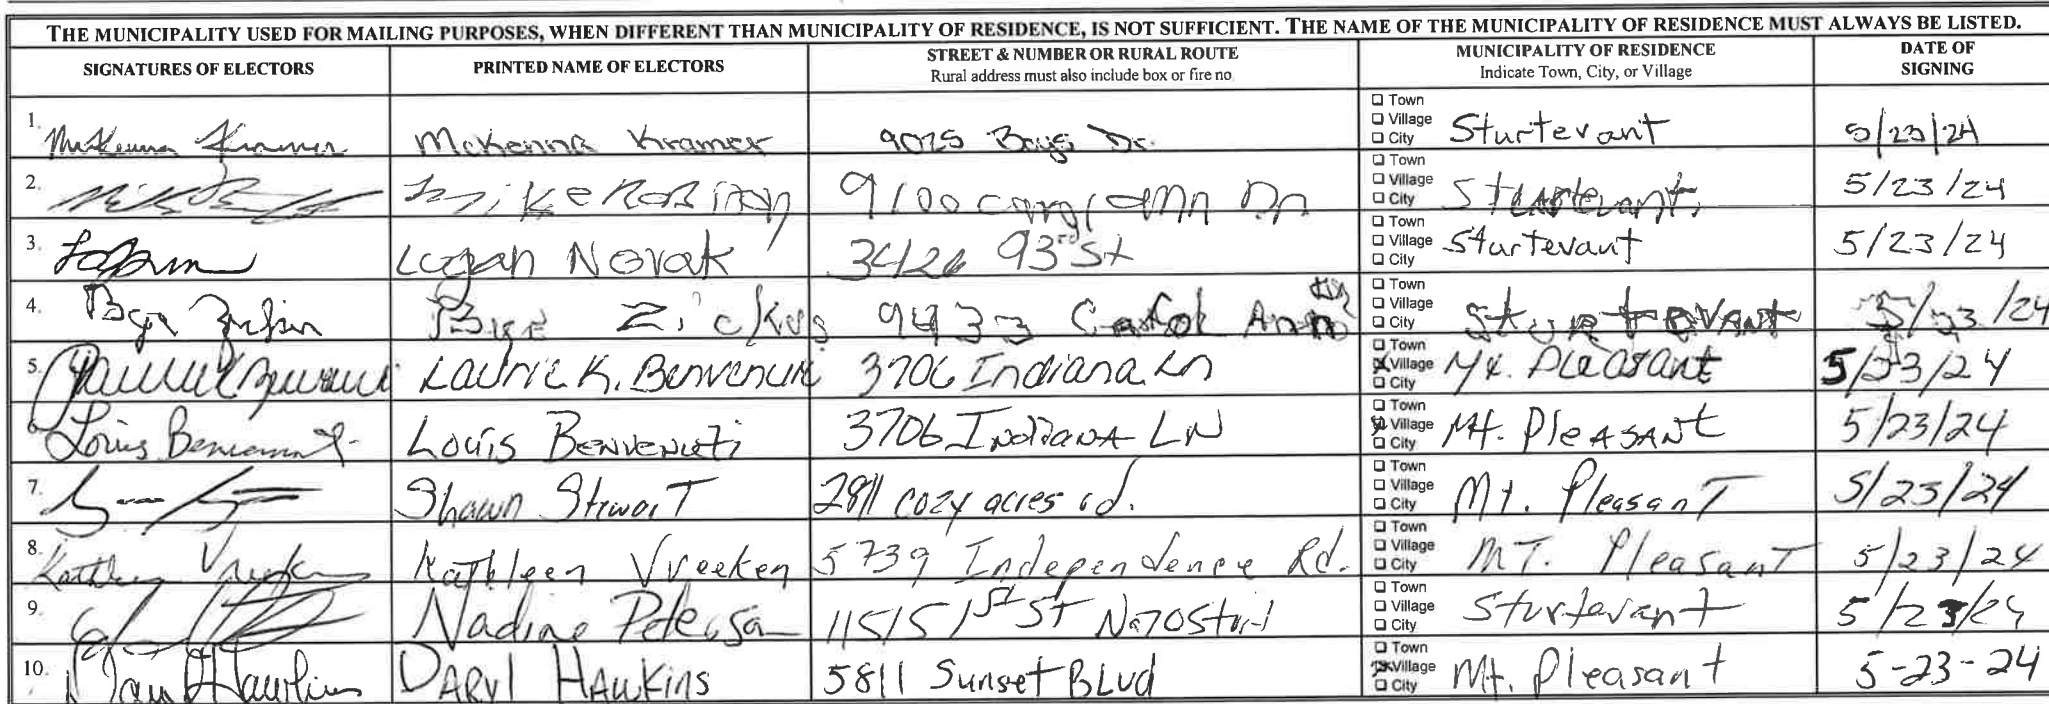 THE MUNICIPALITY USED FOR MAILING PURPOSES, WHEN DIFFERENT THAN MUNICIPALITY OF RESIDENCE, IS NOT SUFFICIENT. THE NAME OF THE MUNICIPALITY OF RESIDENCE MUST ALWAYS BE LISTED.
SIGNATURES OF ELECTORS PRINTED NAME OF ELECTORS STREET & NUMBER OR RURAL ROUTE Rural address must also include box or fire no MUNICIPALITY OF RESIDENCE Indicate Town, City, or Village DATE OF SIGNING
1. McKenna Kramer McKenna Kramer 9025 Bays Dr. Town Village City Sturtevant 5/23/24
2. Mike 9100 Dr Town Village City Sturtevant 5/23/24
3. Logan Novak 3426 93rd St Town Village City Sturtevant 5/23/24
4. Zickus 9433 Carol Ann Town Village City Sturtevant 5/23/24
5. Laurie K. Benvenuti 3706 Indiana Ln Town Village City Mt. Pleasant 5/23/24
6. Louis Benvenuti Louis Benvenuti 3706 Indiana LN Town Village City Mt. Pleasant 5/23/24
7. Shawn Stewart 2811 cozy acres rd. Town Village City Mt. Pleasant 5/23/24
8. Kathleen Vreeken Kathleen Vreeken 5739 Independence Rd. Town Village City MT. Pleasant 5/23/24
9. Nadine Peterson 11515 1st St Town Village City Sturtevant 5/23/24
10. Daryl Hawkins DARYL HAWKINS 5811 Sunset BLVD Town Village City Mt. Pleasant 5-23-24